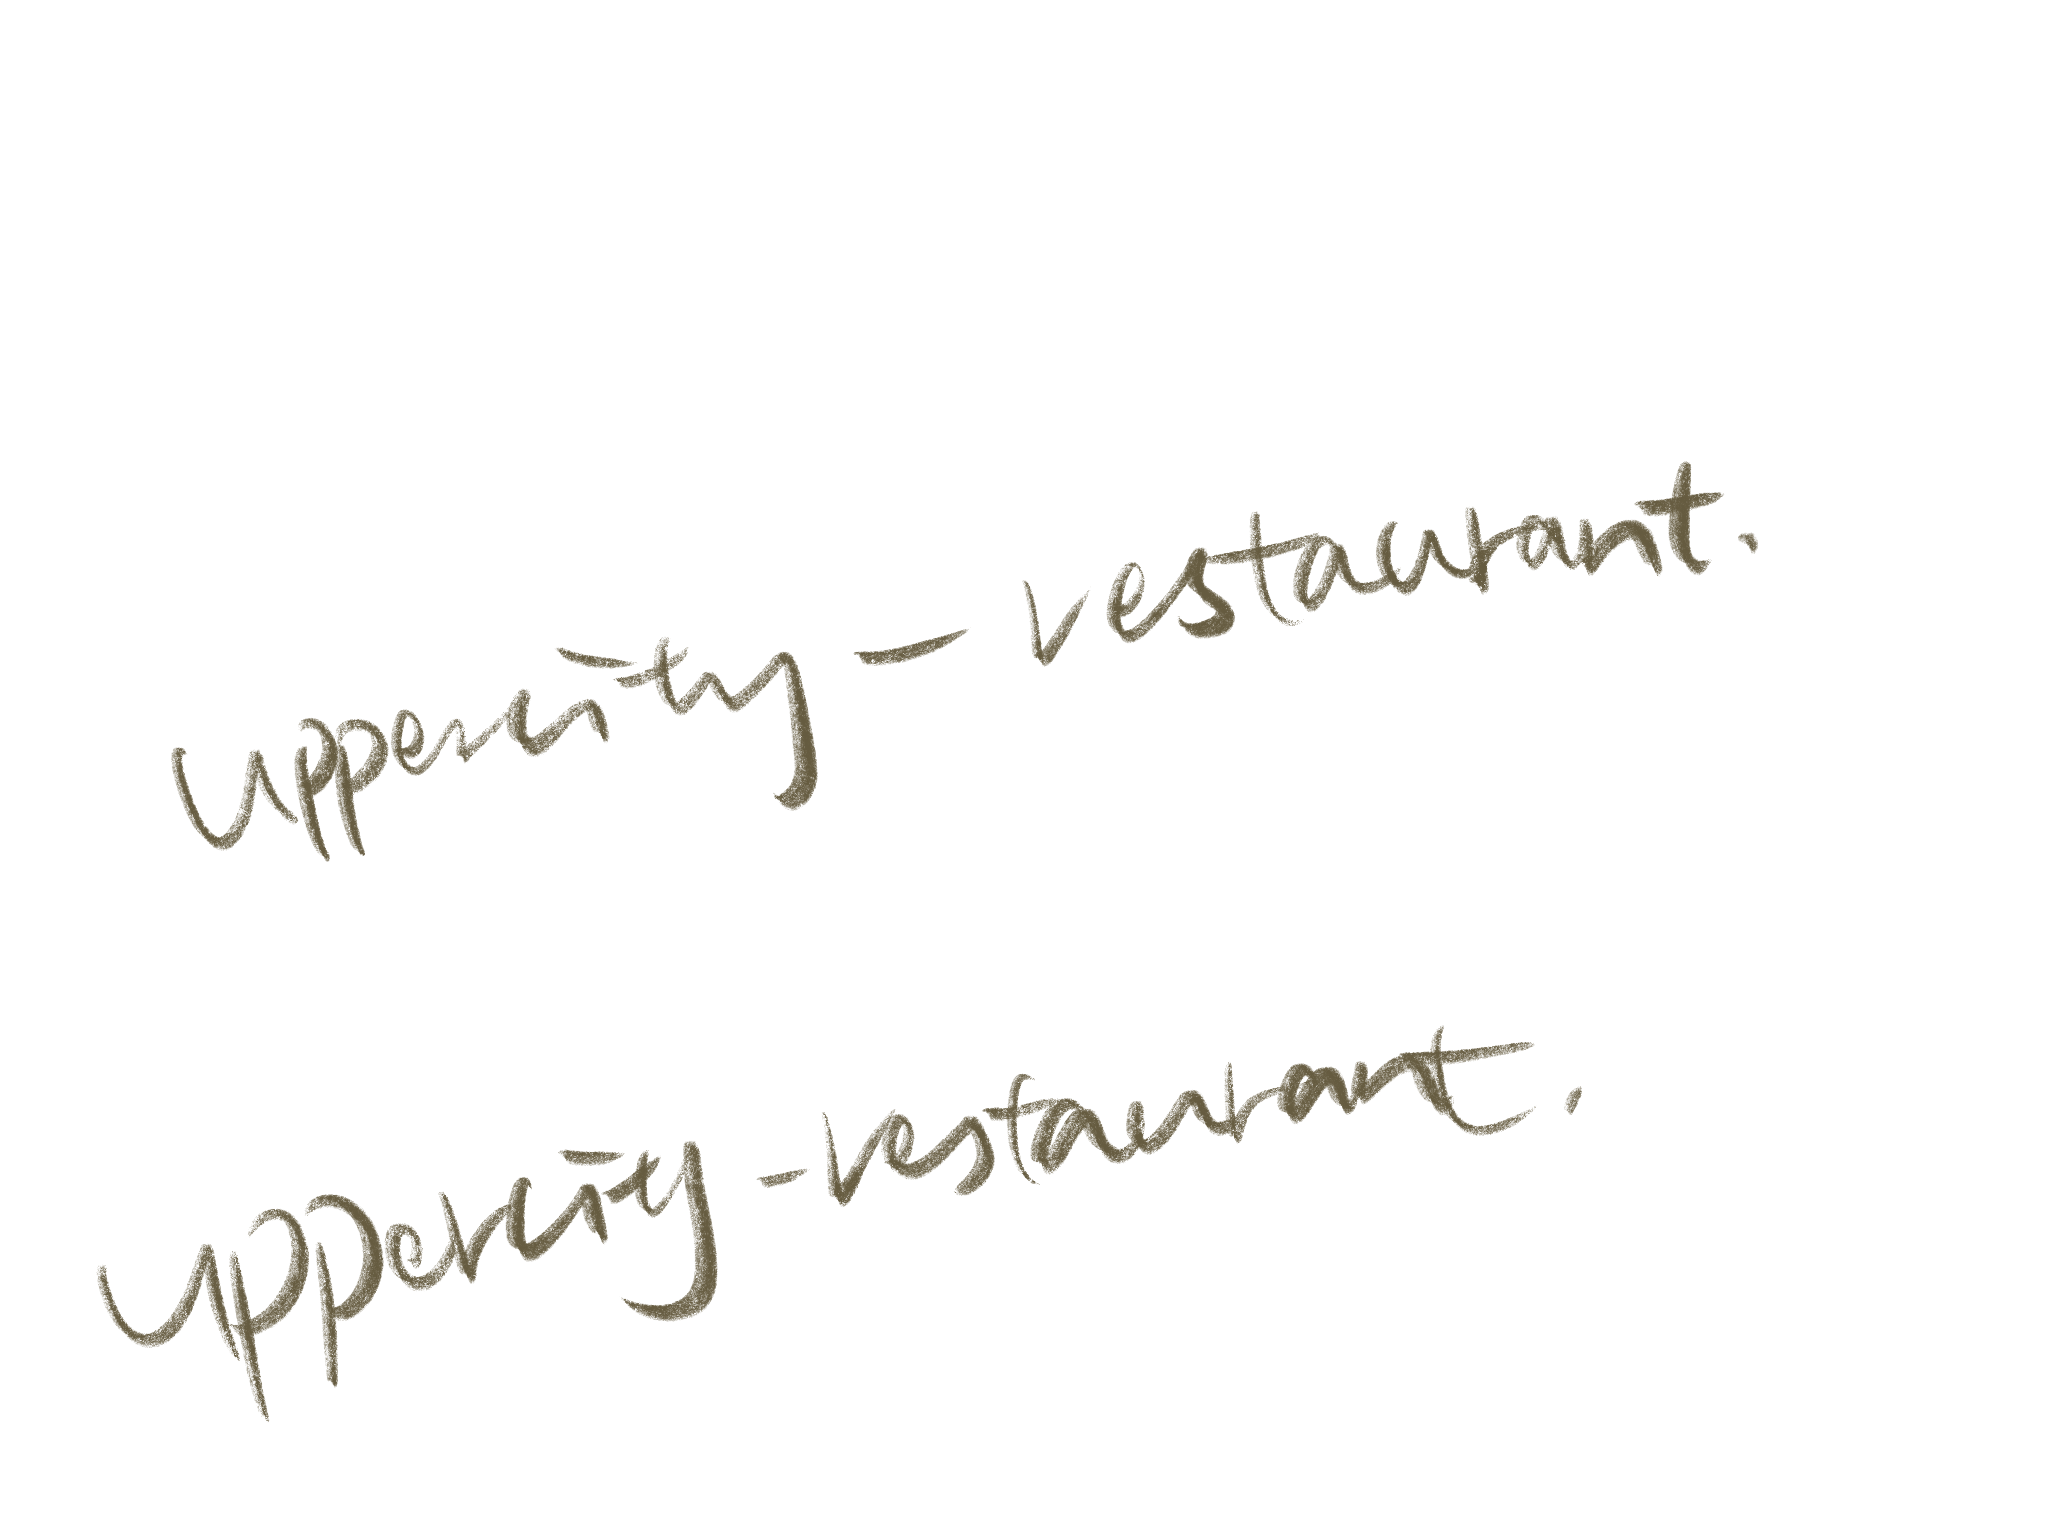 uppercity - restaurant.
uppercity - restaurant.